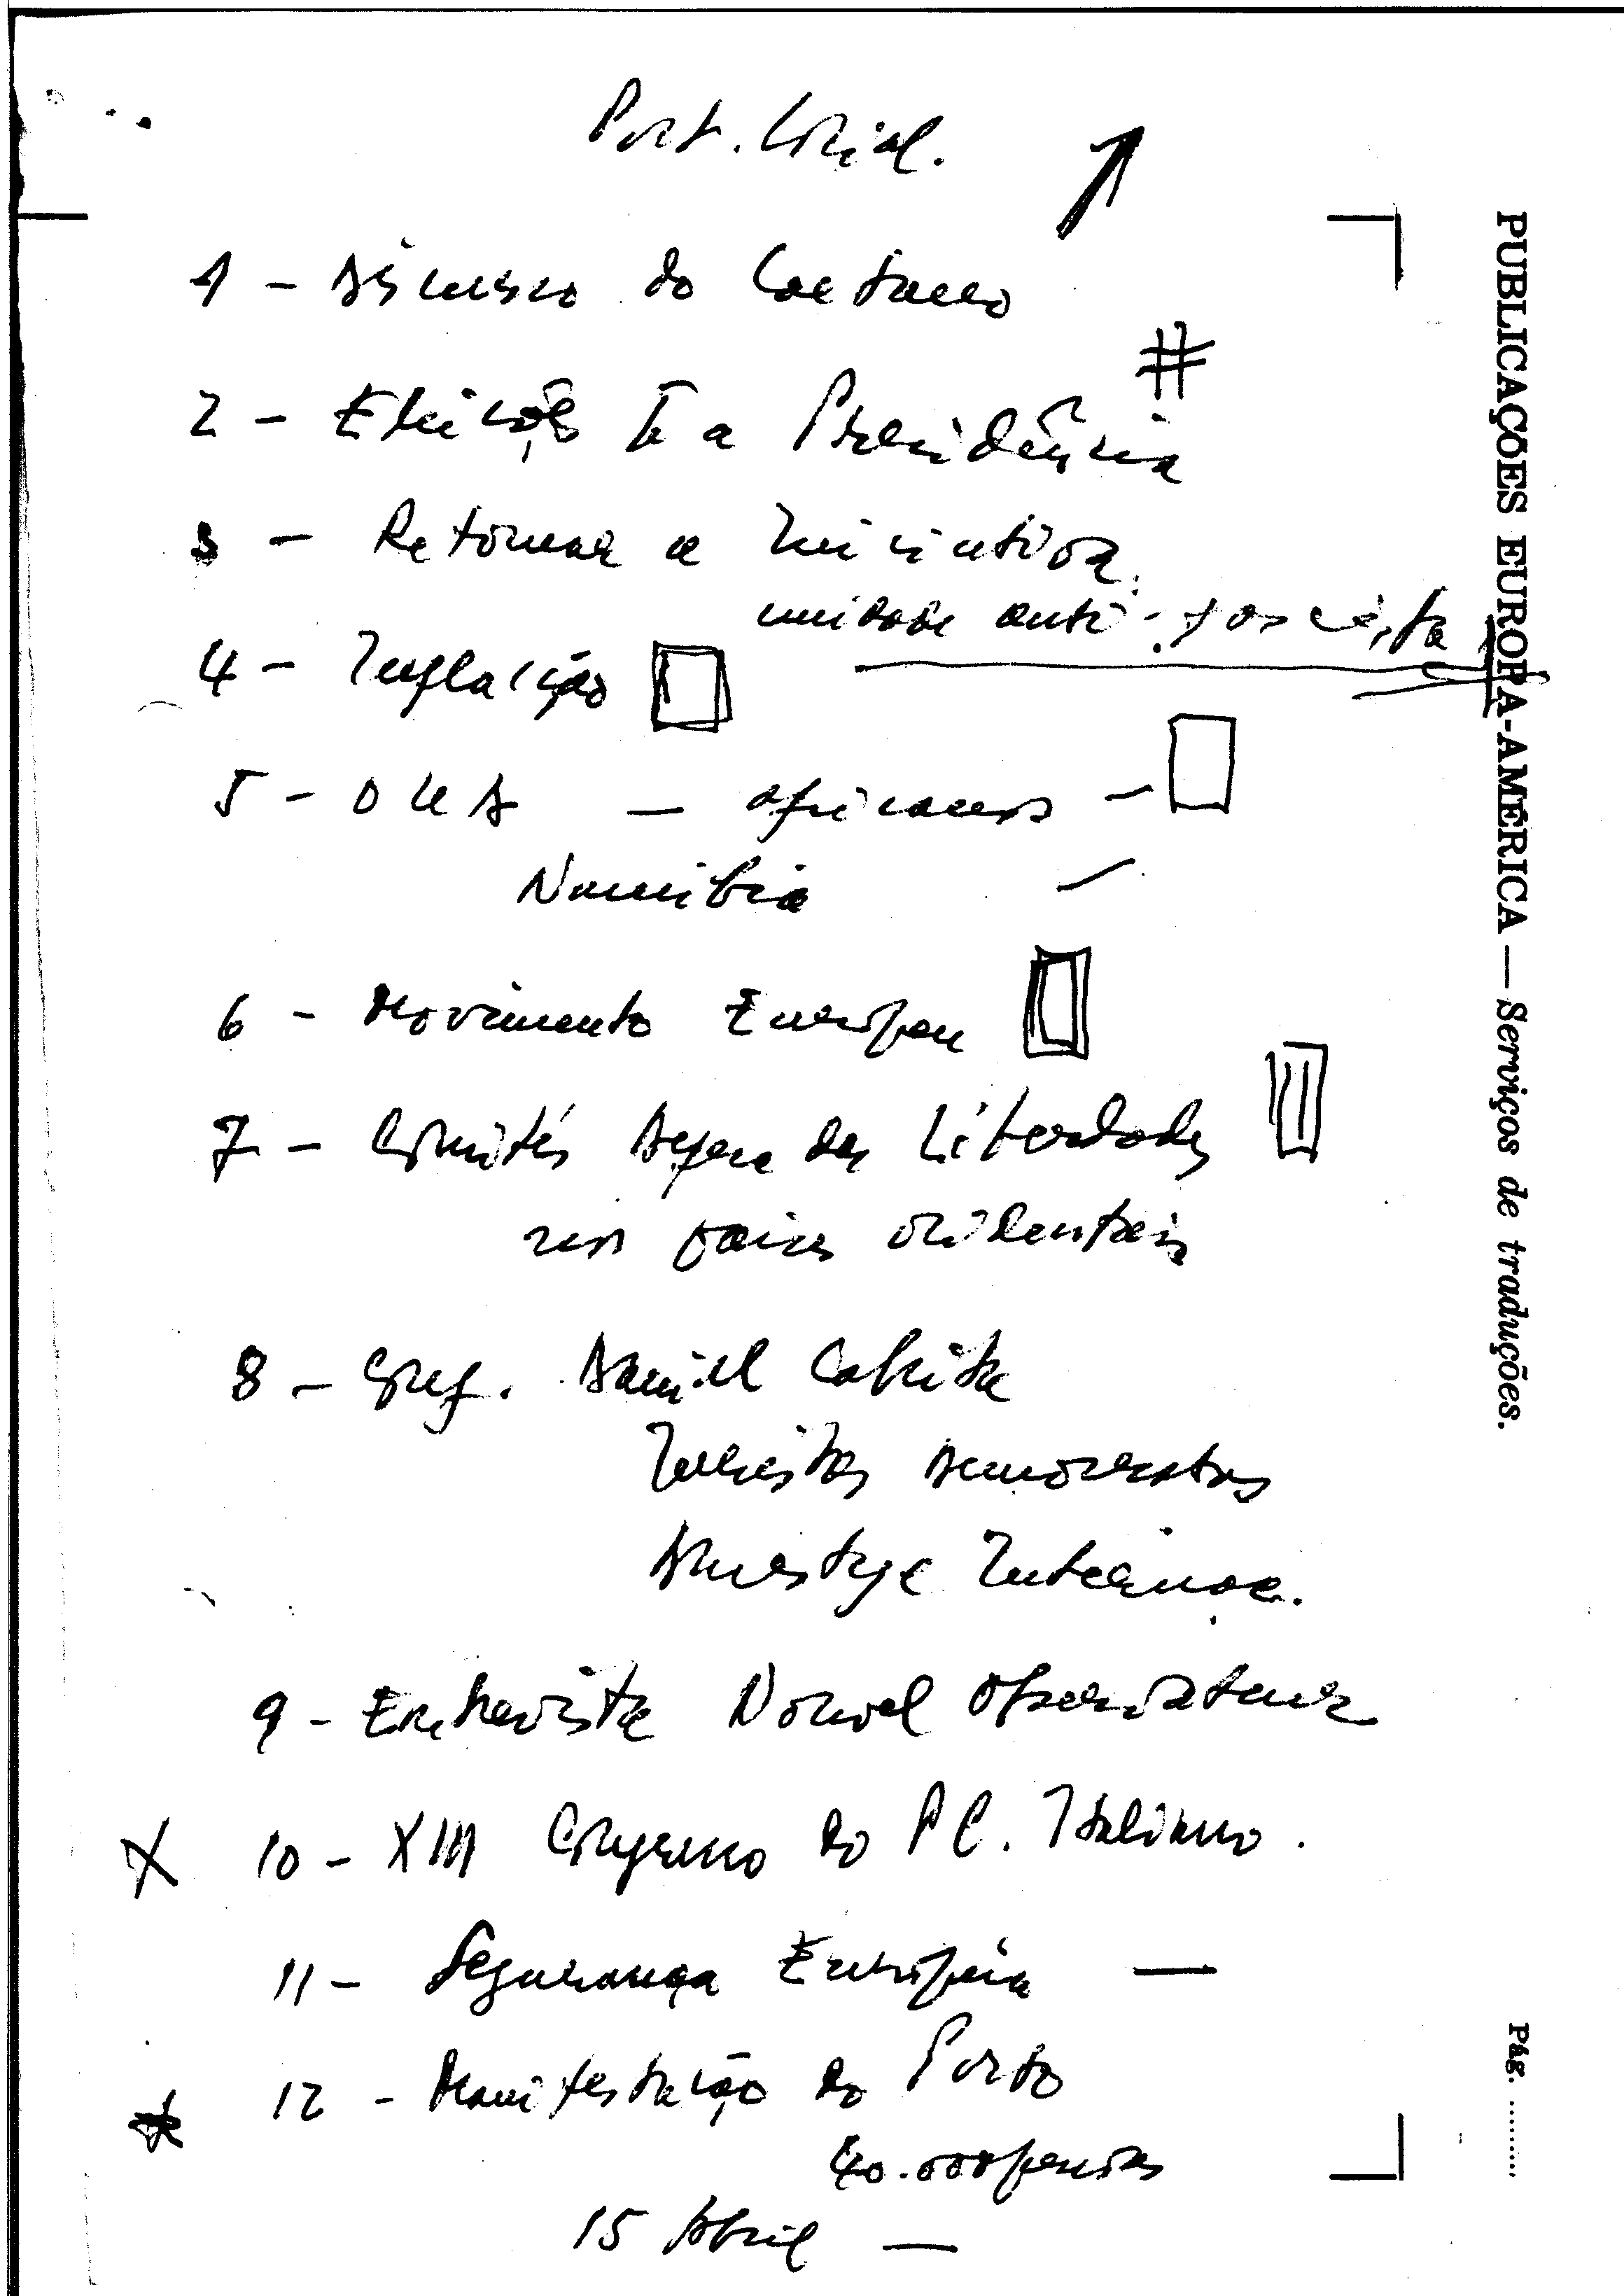 Port. Colonial.
1 - Discurso do Caetano
2 - Eleições Pa a Presidência
3 - Retomar a Iniciativa
unidade anti-fascista
4 - Inflação
5 - OUA - africanos -
Namibia
6 - Movimento Europeu
7 - Comités Defesa das Liberdades
nos países ocidentais
8 - Daniel Cabrita
Juristas Democratas
Amestye Internac.
9 - Entrevista Nouvel Observateur
10 - XIII Congresso do P C. Italiano.
11 - Segurança Européia -
12 - Manifestação do Porto
40.000 pessoas
15 Abril -
PUBLICAÇÕES EUROPA-AMÉRICA — Serviços de traduções.
Pág. .........